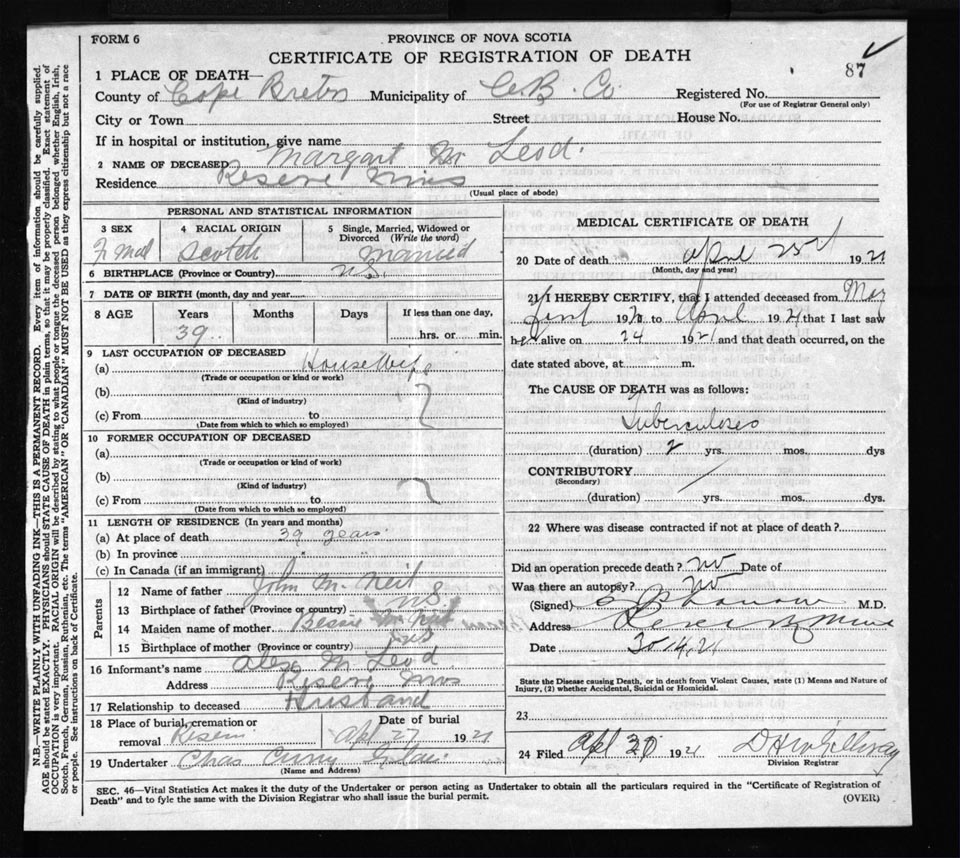 FORM 6
PROVINCE OF NOVA SCOTIA
CERTIFICATE OF REGISTRATION OF DEATH
87
1 PLACE OF DEATH—
County of Cape Breton Municipality of C.B. Co. Registered No.
(For use of Registrar General only)
City or Town Street House No.
If in hospital or institution, give name
2 NAME OF DECEASED Margart Mc Leod.
Residence Reserve Mines
(Usual place of abode)
PERSONAL AND STATISTICAL INFORMATION
3 SEX 4 RACIAL ORIGIN 5 Single, Married, Widowed or
Divorced (Write the word)
Scotch Married
6 BIRTHPLACE (Province or Country) N.S.
7 DATE OF BIRTH (month, day and year)
8 AGE Years Months Days If less than one day,
39 hrs. or min.
9 LAST OCCUPATION OF DECEASED
(a) House Wife
(Trade or occupation or kind or work)
(b)
(Kind of industry)
(c) From to
(Date from which to which so employed)
10 FORMER OCCUPATION OF DECEASED
(a)
(Trade or occupation or kind of work)
(b)
(Kind of industry)
(c) From to
(Date from which to which so employed)
11 LENGTH OF RESIDENCE (In years and months)
(a) At place of death 39 years
(b) In province " "
(c) In Canada (if an immigrant)
Parents
12 Name of father John Mc Neil
13 Birthplace of father (Province or country) N.S.
14 Maiden name of mother Bessie
15 Birthplace of mother (Province or country) NS
16 Informant's name Alex Mc Leod
Address Reserve Mines
17 Relationship to deceased Husband
18 Place of burial, cremation or Date of burial
removal Reserve Apl 27 1921
19 Undertaker Chas Curry Glace
(Name and Address)
MEDICAL CERTIFICATE OF DEATH
20 Date of death April 25 1921
(Month, day and year)
21 I HEREBY CERTIFY, that I attended deceased from
192 to April 1921 that I last saw
her alive on 24 1921 and that death occurred, on the
date stated above, at m.
The CAUSE OF DEATH was as follows:
Tuberculoses
(duration) 2 yrs. mos. dys
CONTRIBUTORY
(Secondary)
(duration) yrs. mos. dys.
22 Where was disease contracted if not at place of death?
Did an operation precede death? No Date of
Was there an autopsy? No
(Signed) M.D.
Address Reserve Mines
Date
State the Disease causing Death, or in death from Violent Causes, state (1) Means and Nature of
Injury, (2) whether Accidental, Suicidal or Homicidal.
23
24 Filed Apl 30 1921
Division Registrar
SEC. 46—Vital Statistics Act makes it the duty of the Undertaker or person acting as Undertaker to obtain all the particulars required in the "Certificate of Registration of
Death" and to fyle the same with the Division Registrar who shall issue the burial permit.
(OVER)
N.B.—WRITE PLAINLY WITH UNFADING INK—THIS IS A PERMANENT RECORD. Every item of information should be carefully supplied.
AGE should be stated EXACTLY. PHYSICIANS should STATE CAUSE OF DEATH in plain terms, so that it may be properly classified. Exact statement of
OCCUPATION is very important. RACIAL ORIGIN will be described by stating to what people or tongue the deceased person belonged, whether English, Irish,
Scotch, French, German, Russian, Ruthenian, etc. The terms "AMERICAN" OR "CANADIAN" MUST NOT BE USED as they express citizenship but not a race
or people. See instructions on back of Certificate.